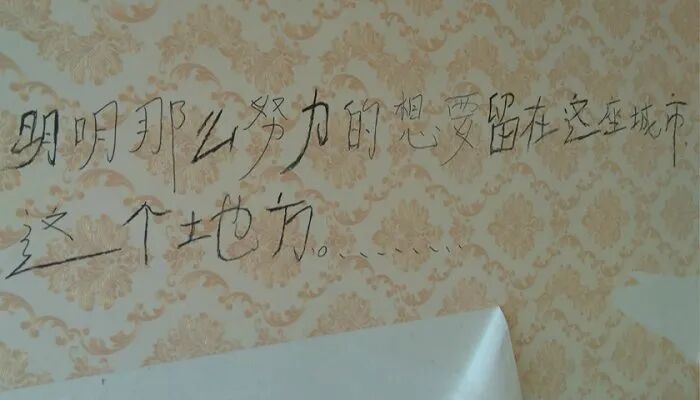 明明那么努力的想要留在这座城市.
这个土地方。........